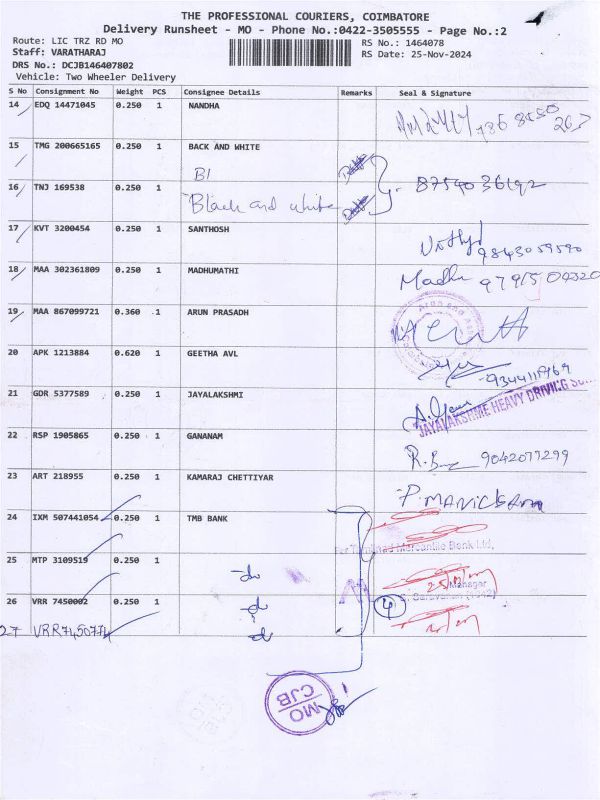 THE PROFESSIONAL COURIERS, COIMBATORE
Delivery Runsheet - MO - Phone No.:0422-3505555 - Page No.:2
Route: LIC TRZ RD MO RS No.: 1464078
Staff: VARATHARAJ RS Date: 25-Nov-2024
DRS No.: DCJB146407802
Vehicle: Two Wheeler Delivery
S No Consignment No Weight PCS Consignee Details Remarks Seal & Signature
14 EDQ 14471045 0.250 1 NANDHA
15 TMG 200665165 0.250 1 BACK AND WHITE
Bl
16 TNJ 169538 0.250 1 8754036192
Black and white
17 KVT 3200454 0.250 1 SANTHOSH 9843059590
18 MAA 302361809 0.250 1 MADHUMATHI Madhu 9791504320
19 MAA 867099721 0.360 1 ARUN PRASADH
20 APK 1213884 0.620 1 GEETHA AVL 9344111969
21 GDR 5377589 0.250 1 JAYALAKSHMI
JAYALAKSHMI HEAVY DRIVING
22 RSP 1905865 0.250 1 GANANAM 9042077299
23 ART 218955 0.250 1 KAMARAJ CHETTIYAR P. MANICKAM
24 IXM 507441054 0.250 1 TMB BANK
For Tamilnad Mercantile Bank Ltd,
25 MTP 3109519 0.250 1 -do
Manager
26 VRR 7450002 0.250 1 4
27 VRR7450774
MO
CJB